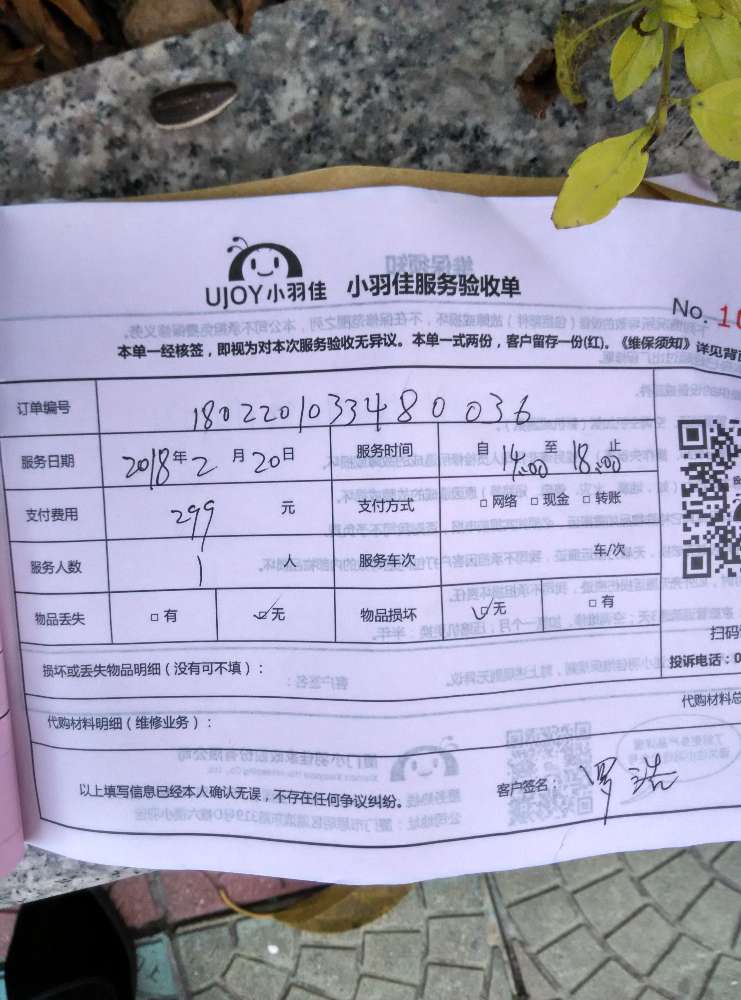 UJOY小羽佳 小羽佳服务验收单
No. 10
本单一经核签，即视为对本次服务验收无异议。本单一式两份，客户留存一份(红)。《维保须知》详见背面
订单编号 180220103348 0036
服务日期 2018年2月20日 服务时间 自14:00至18:00止
支付费用 299 元 支付方式 □网络 □现金 □转账
服务人数 1 人 服务车次 车/次
物品丢失 □有 ☑无 物品损坏 ☑无 □有
扫码
损坏或丢失物品明细（没有可不填）：
投诉电话：0
代购材料明细（维修业务）：
代购材料总
以上填写信息已经本人确认无误，不存在任何争议纠纷。
客户签名： 罗浩